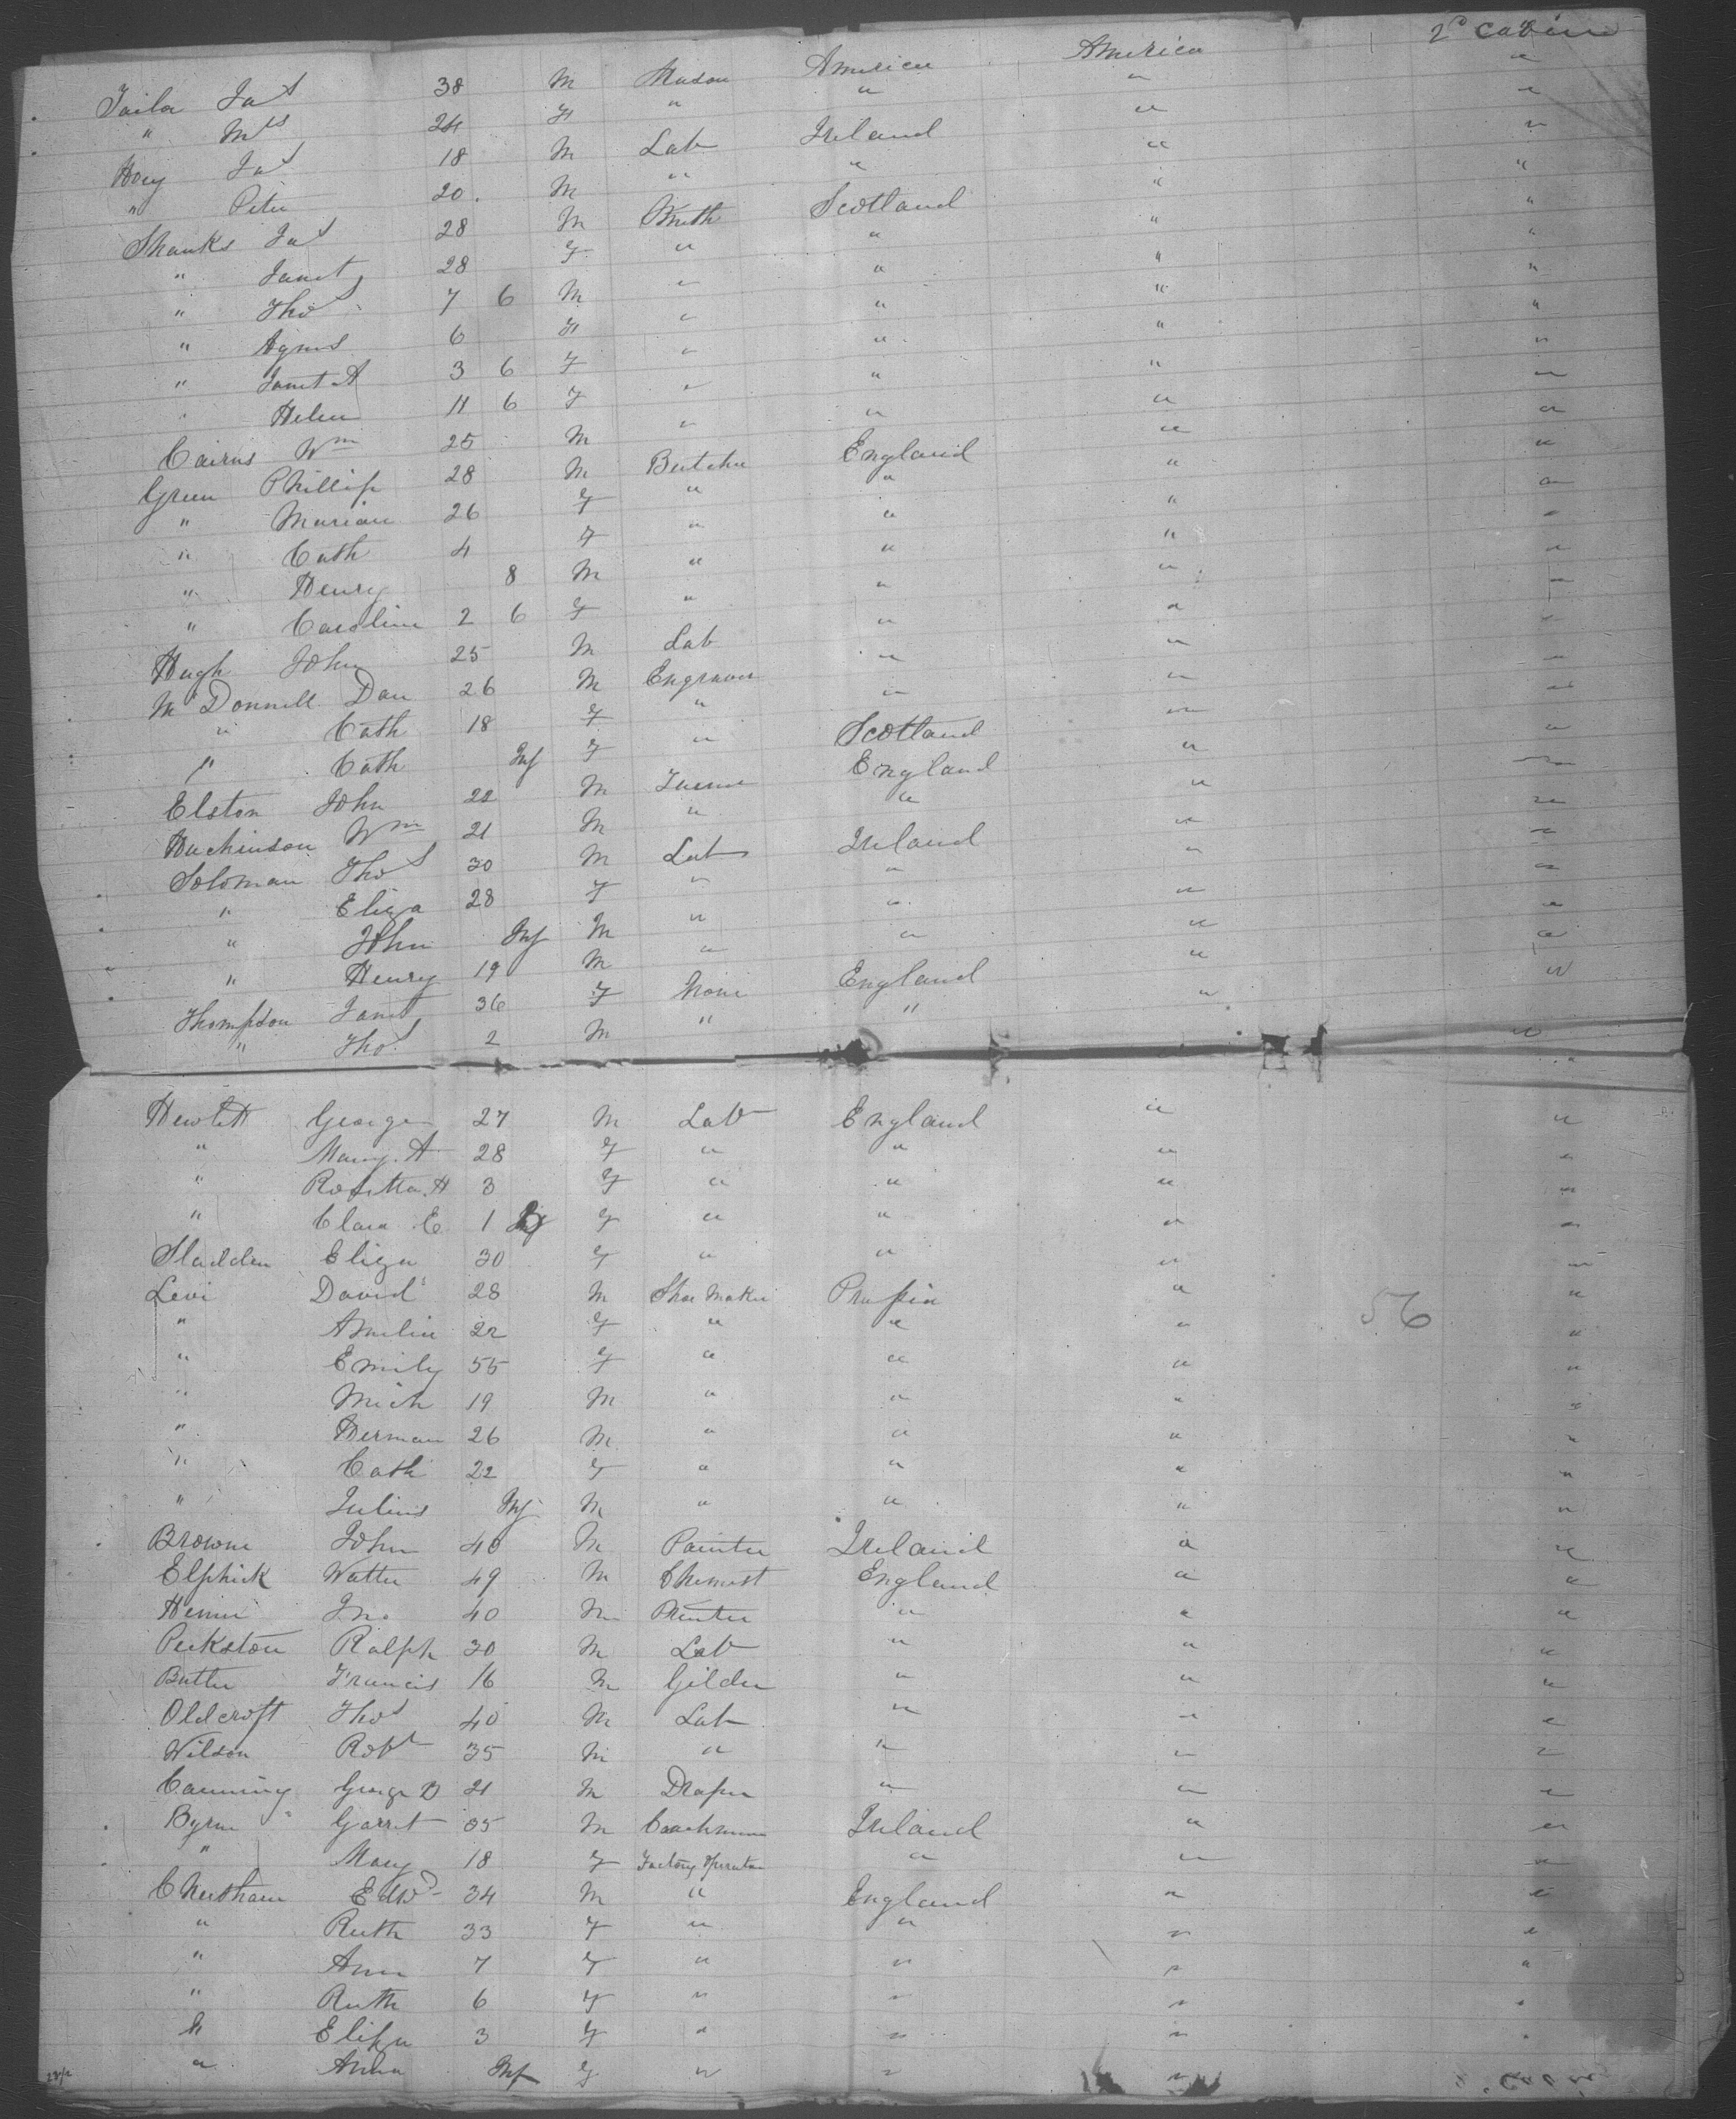 2d Cabin
Taila Jas 38 M Mason America America "
" Mrs 24 F " " " "
Hoey Jas 18 M Lab Ireland " "
" Peter 20 M " " " "
Shanks Jas 28 M Smith Scotland " "
" Janet 28 F " " " "
" Thos 7 6 M " " " "
" Agnes 6 F " " " "
" Janet A 3 6 F " " " "
" Helen 11 6 F " " " "
Cairns Wm 25 M " " " "
Green Phillip 28 M Butcher England " "
" Marian 26 F " " " "
" Cath 4 F " " " "
" Henry 8 M " " " "
" Caroline 2 6 F " " " "
Hugh John 25 M Lab " " "
McDonnell Dan 26 M Engraver " " "
" Cath 18 F " " " "
" Cath Inf F " Scotland " "
Elston John 22 M England " "
Huchinson Wm 21 M " " " "
Soloman Thos 30 M Lab Ireland " "
" Eliza 28 F " " " "
" John Inf M " " " "
" Henry 19 M " " " "
Thompson Janet 36 F None England " "
" Thos 2 M " " " "
Hewlett George 27 M Lab England " "
" Mary A 28 F " " " "
" Rosetta H 3 F " " " "
" Clara E 1 F " " " "
Sladden Eliza 30 F " " " "
Levi David 28 M Shoe Maker Prussia " "
56
" Amelia 22 F " " " "
" Emily 55 F " " " "
" Mich 19 M " " " "
" Herman 26 M " " " "
" Cath 22 F " " " "
" Julius Inf M " " " "
Browne John 40 M Painter Ireland " "
Elphick Walter 49 M Chemist England " "
Jno. 40 M Printer " " "
Peckston Ralph 30 M Lab " " "
Butler Francis 16 M Gilder " " "
Oldcroft Thos 40 M Lab " " "
Wilson Robt 35 M " " " "
Canning George D 21 M Draper " " "
Byrne Garret 35 M Coachman Ireland " "
" Mary 18 F Factory Operator " " "
Cheetham Edwd 34 M " England " "
" Ruth 33 F " " " "
" Ann 7 F " " " "
" Ruth 6 F " " " "
" Eliza 3 F " " " "
" Anna Inf F " " "